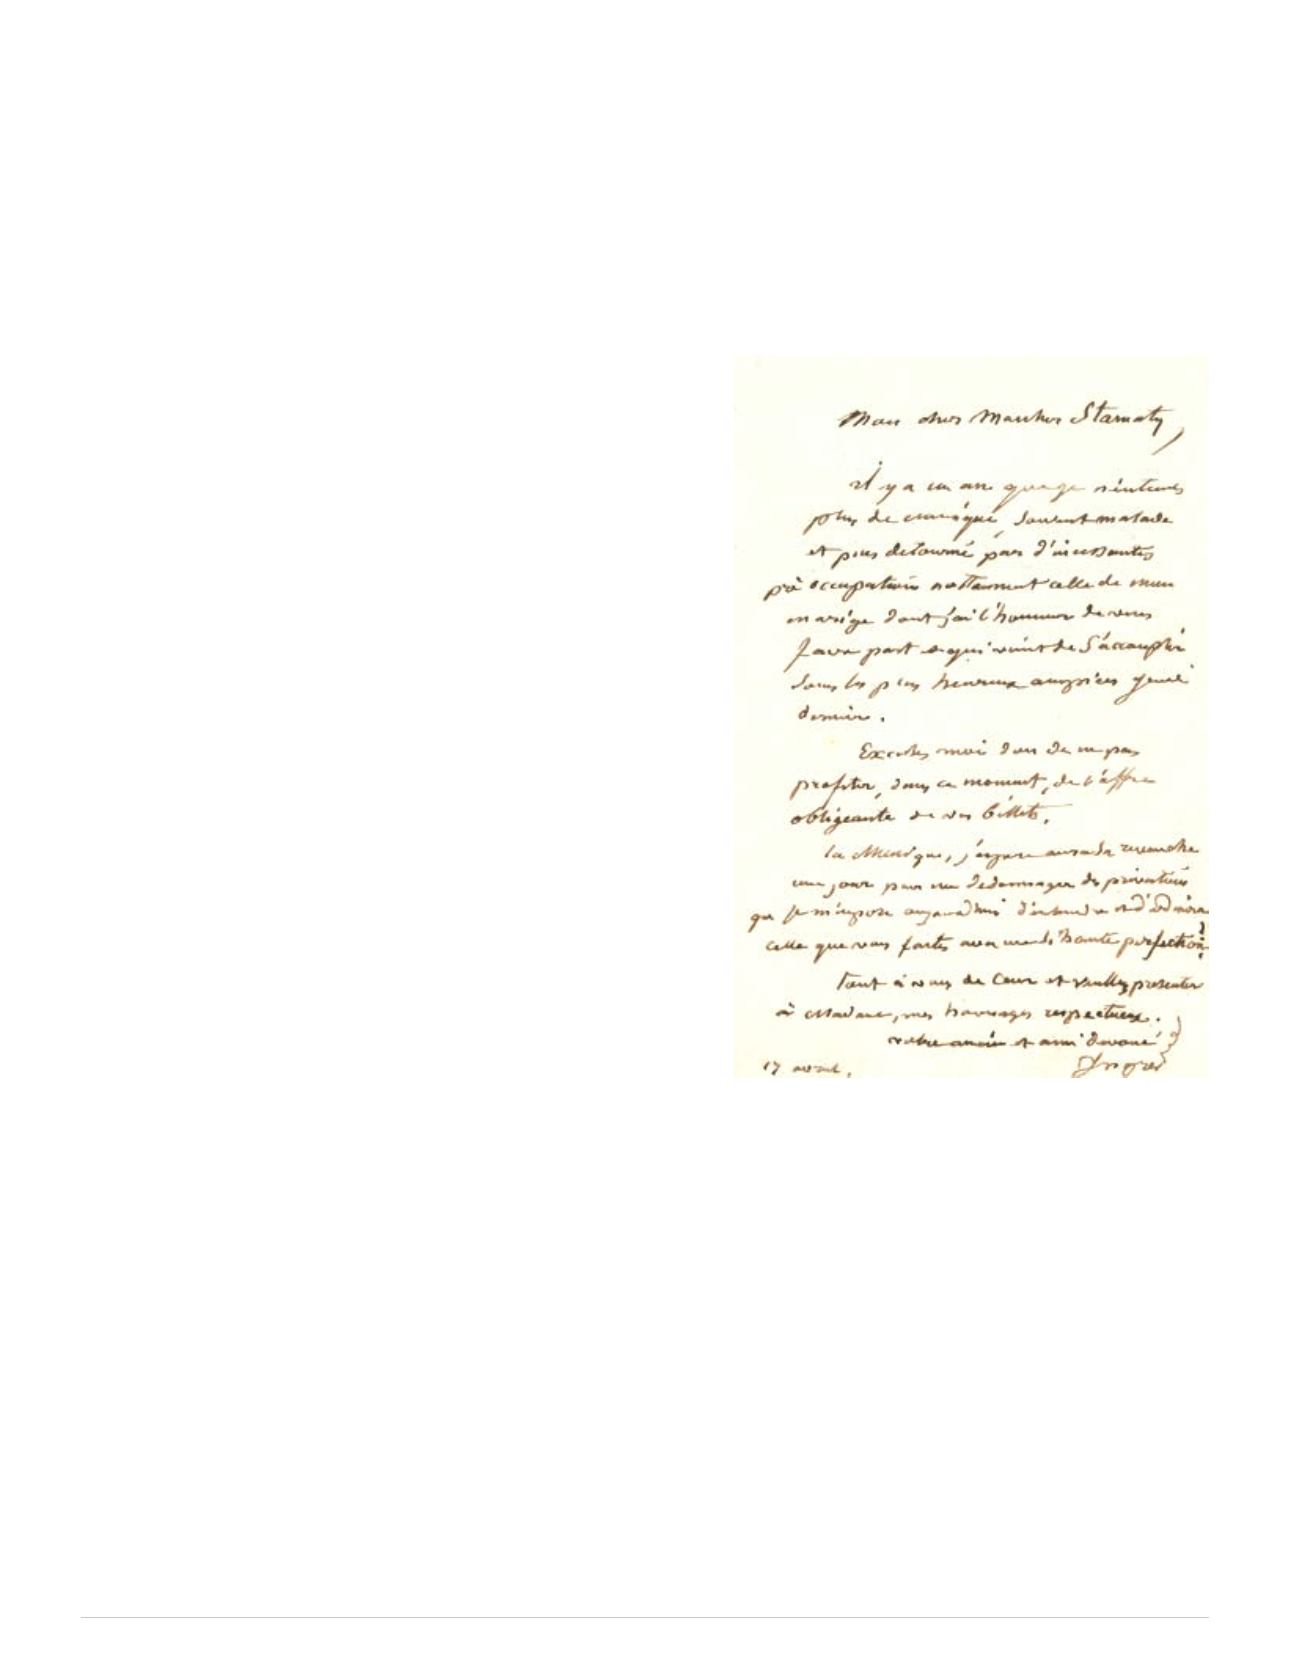 Mon cher Monsieur Stamaty,
il y a un an que je n'entends
plus de musique, souvent malade
et puis detourné par d'incessantes
préoccupations nottament celle de mon
mariage dont j'ai l'honneur de vous
faire part et qui vient de s'accomplir
sous les plus heureux auspices jeudi
dernier.
Excuses moi donc de ne pas
profiter, dans ce moment, de l'offre
obligeante de vos billets.
la Musique, j'espere aura sa revanche
un jour pour me dedommager des privations
que je m'impose aujourdhui d'entendre et d'admirer
celle que vous faites avec une si haute perfection
Tout à vous de Cœur et veuillez presenter
à Madame, mes hommages respectueux.
votre ancien et ami devoué
17 avril. Ingres